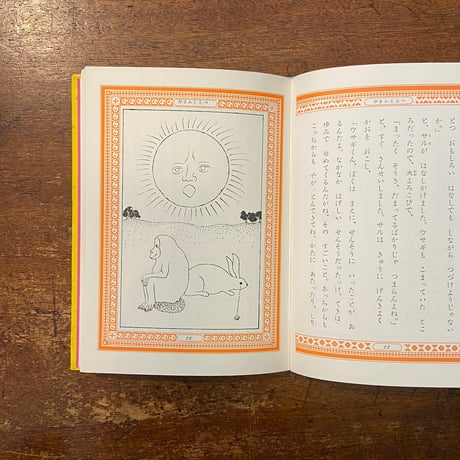 がまんくらべ
がまんくらべ
とつ おもしろい はなしでも しながら つづけようじゃない
か。」
と、サルが はなしかけました。ウサギも こまっていた とこ
ろだったので、大よろこびで、
「まったく そうさ。だまってるばかりじゃ つまらんよね。」
と、すぐ さんせいしました。サルは きゅうに げんきよく
かおを おこし、
「ウサギくん、ぼくは まえに、せんそうに いったことが あ
るんだよ。なかなか はげしい せんそうだったっけ。てきは
ゆみで せめてくるんだがね、その すごいこと。あっちからも
こっちからも やが とんできてね、かたに あたったり、しり
13